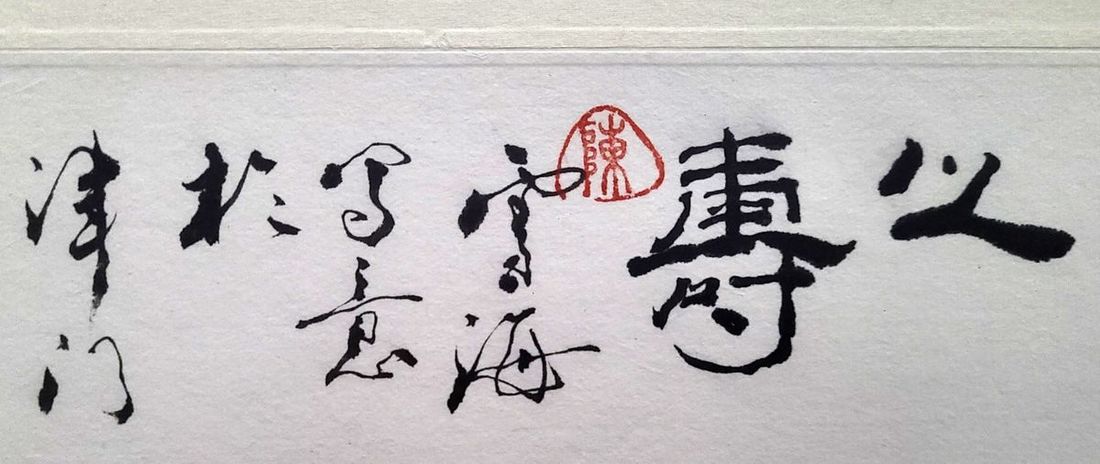 以
壽
陳
雲海
写意
於
津门